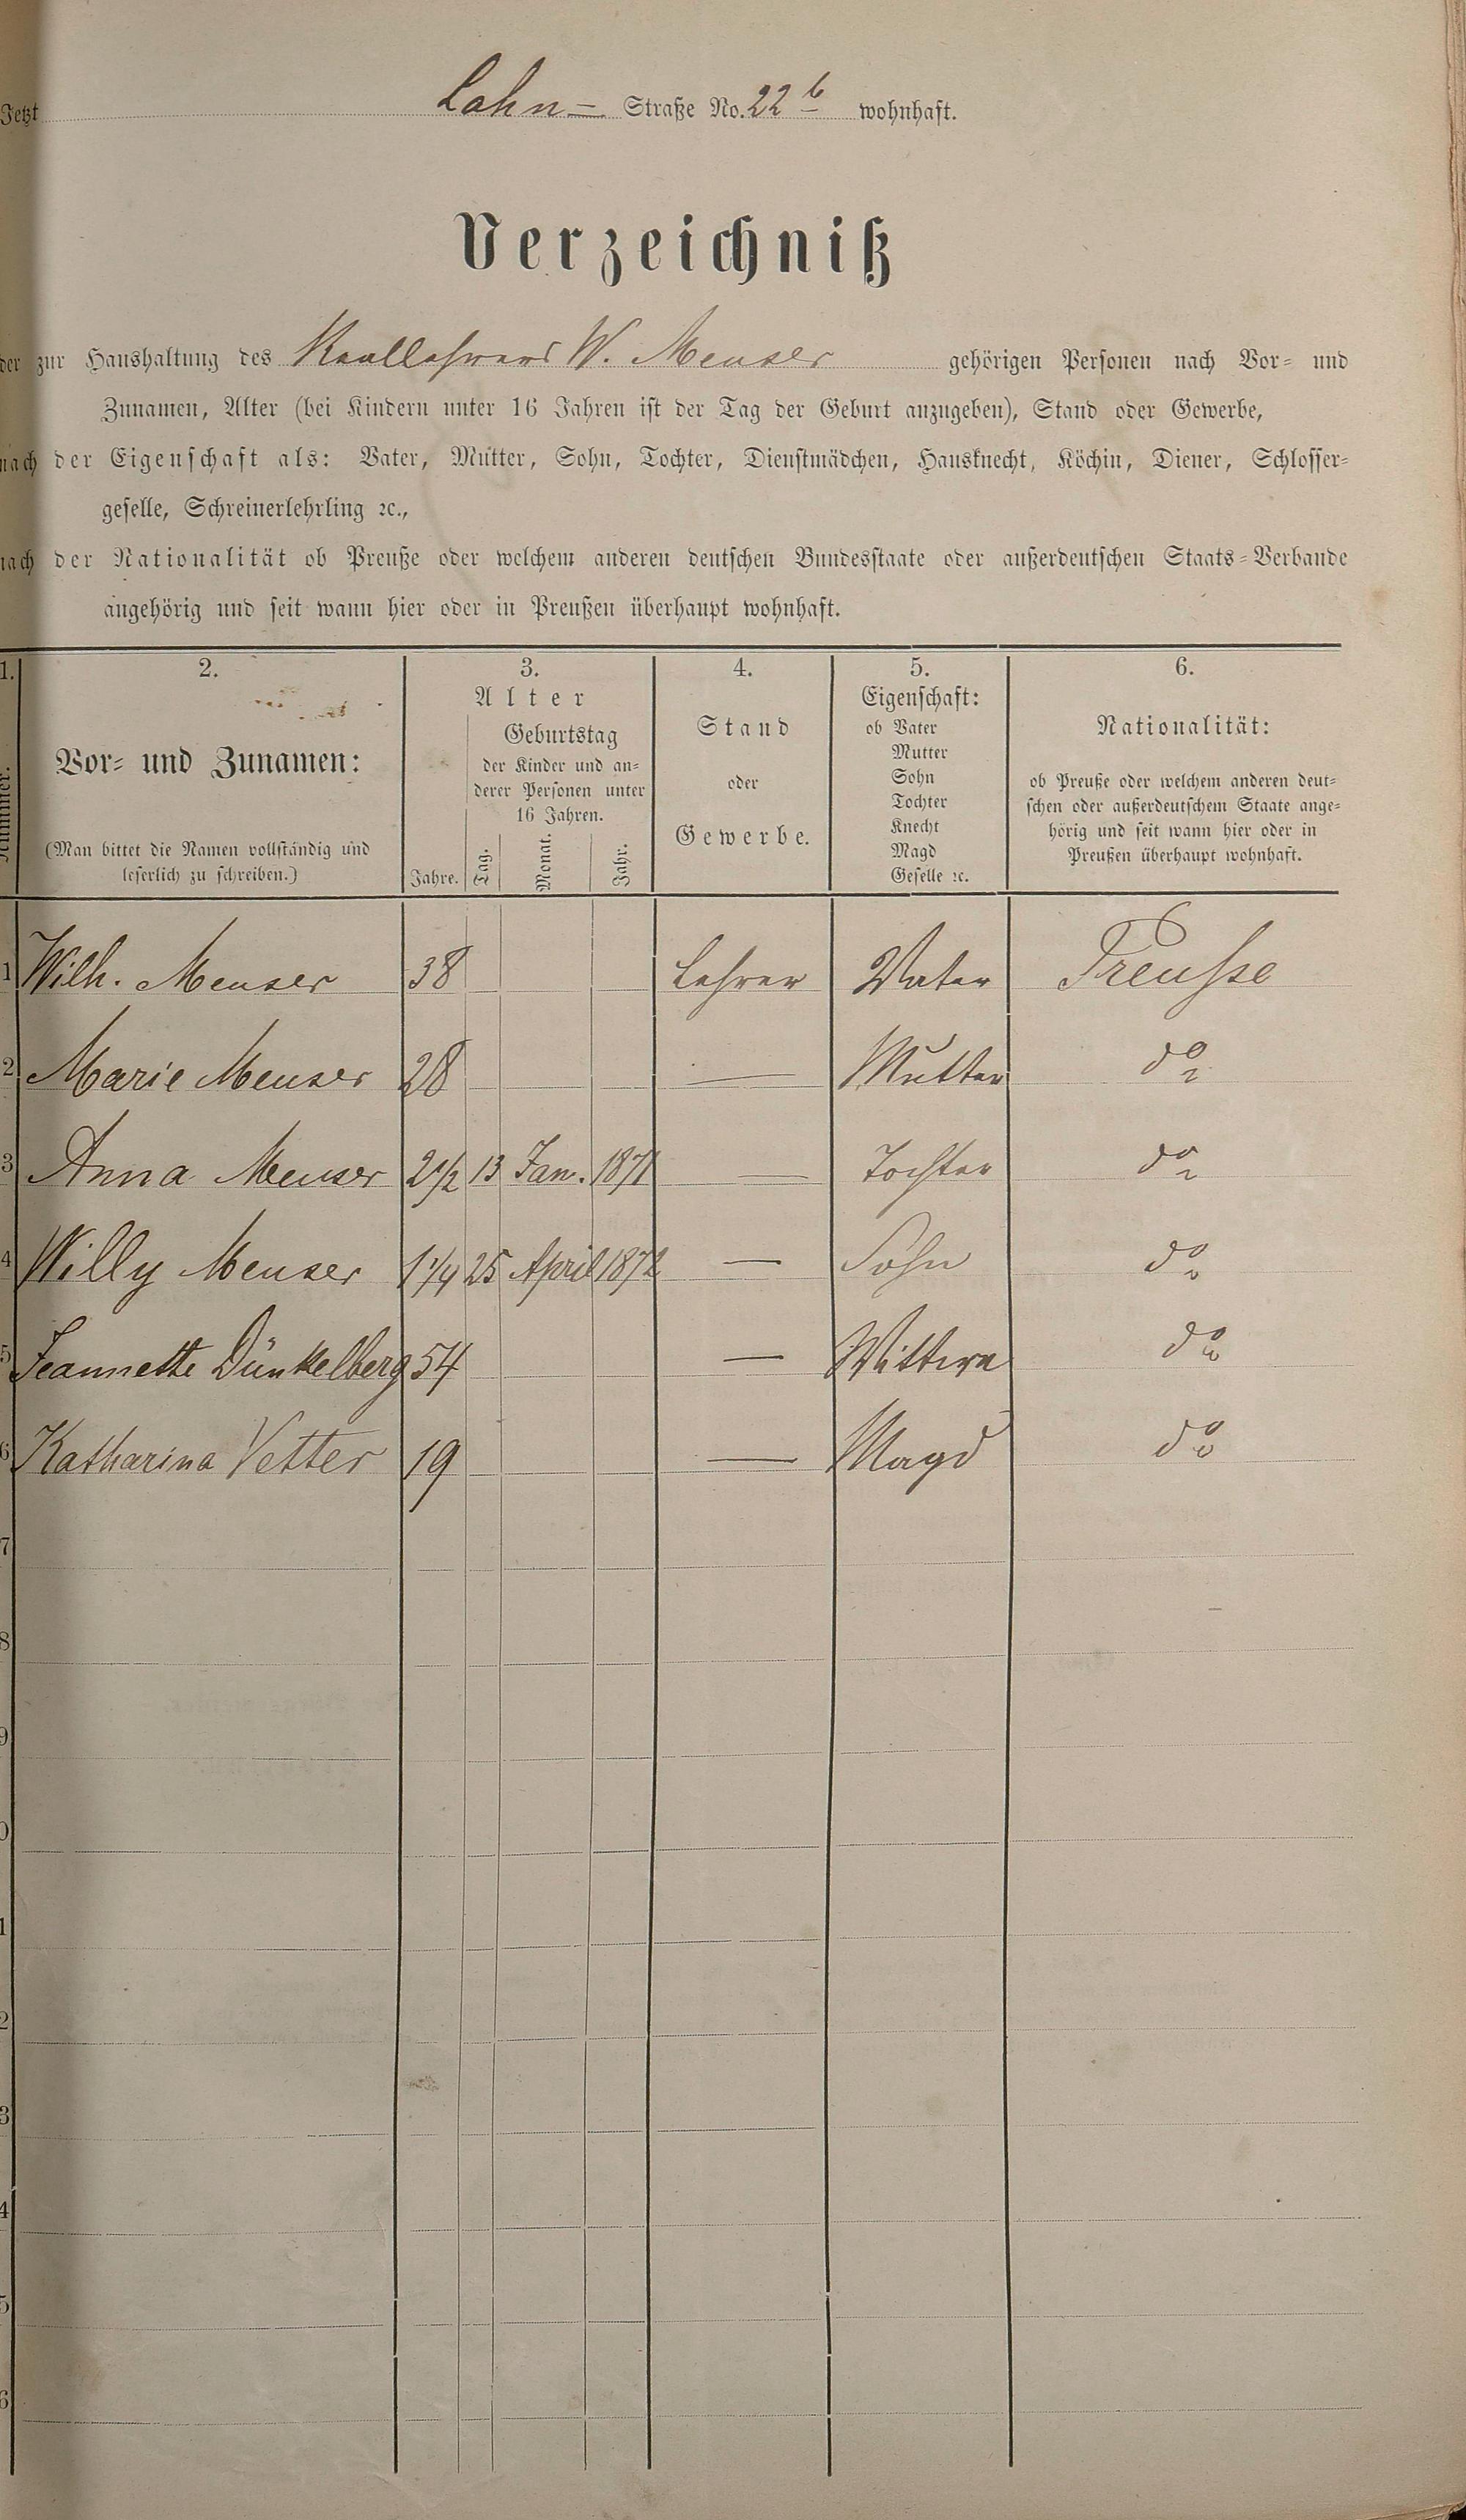 Jetzt Lahn= Straße No. 22 b wohnhaft.
Verzeichniß
der zur Haushaltung des Reallehrers W. Menser gehörigen Personen nach Vor= und
Zunamen, Alter (bei Kindern unter 16 Jahren ist der Tag der Geburt anzugeben), Stand oder Gewerbe,
nach der Eigenschaft als: Vater, Mutter, Sohn, Tochter, Dienstmädchen, Hausknecht, Köchin, Diener, Schlosser=
geselle, Schreinerlehrling ꝛc.,
nach der Nationalität ob Preuße oder welchem anderen deutschen Bundesstaate oder außerdeutschen Staats=Verbande
angehörig und seit wann hier oder in Preußen überhaupt wohnhaft.
1. 2. 3. 4. 5. 6.
Nummer.
Vor= und Zunamen:
(Man bittet die Namen vollständig und
leserlich zu schreiben.)
Alter
Jahre.
Geburtstag
der Kinder und an=
derer Personen unter
16 Jahren.
Tag. Monat. Jahr.
Stand
oder
Gewerbe.
Eigenschaft:
ob Vater
Mutter
Sohn
Tochter
Knecht
Magd
Geselle ꝛc.
Nationalität:
ob Preuße oder welchem anderen deut=
schen oder außerdeutschem Staate ange=
hörig und seit wann hier oder in
Preußen überhaupt wohnhaft.
1 Wilh. Menser 38 Lehrer Vater Preusse
2 Marie Menser 28 — Mutter do
3 Anna Menser 2 1/2 13 Jan. 1871 — Tochter do
4 Willy Menser 1 1/4 25 April 1872 — Sohn do
5 Jeannette Dünkelberg 54 — Wittwe do
6 Katharina Vetter 19 — Magd do
7
8
9
0
1
2
3
4
5
6